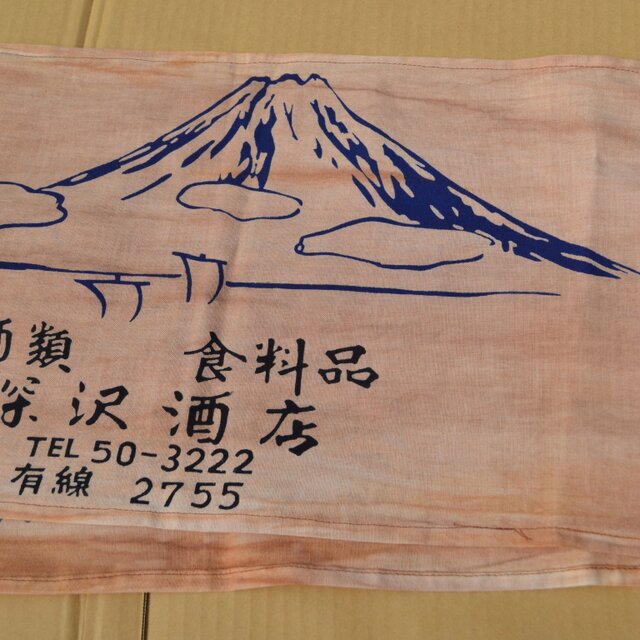 酒類 食料品
深沢酒店
TEL 50-3222
有線 2755